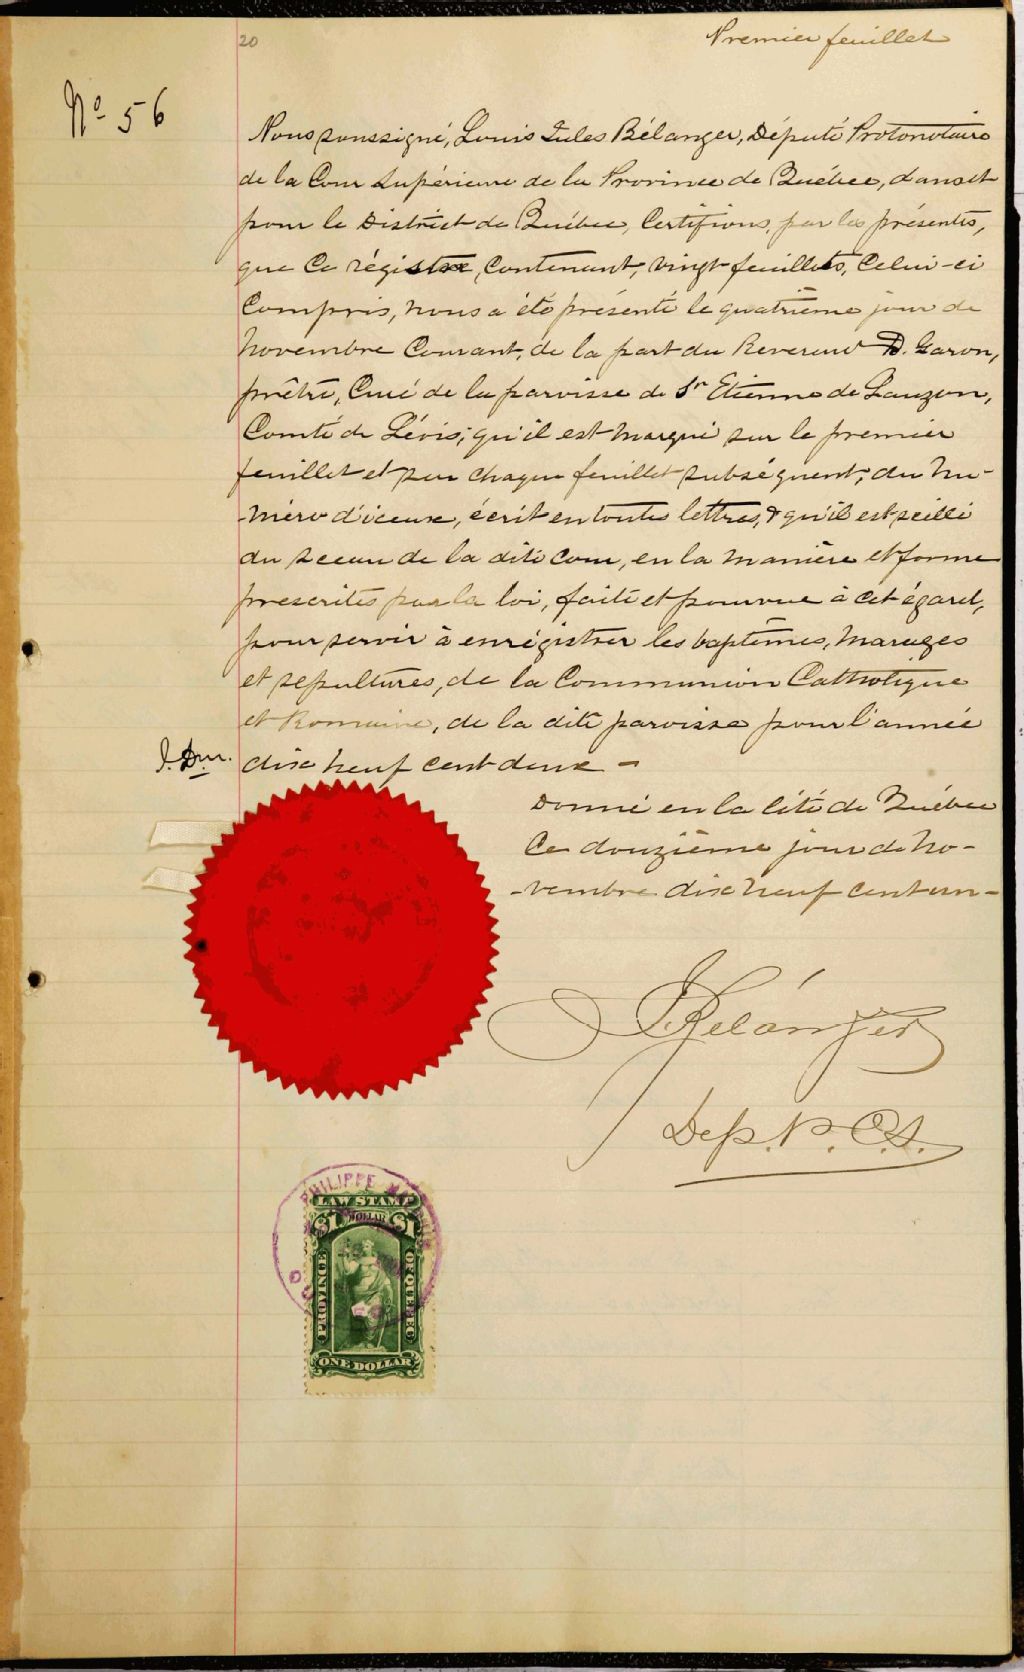 20
Premier feuillet
No 56
Nous soussigné, Louis Jules Bélanger, Député Protonotaire
de la Cour Supérieure de la Province de Québec, dans et
pour le District de Québec, Certifions, par les présentes,
que Ce régistre, Contenant, vingt-feuillets, Celui-ci
Compris, nous a été présenté le quatrième jour de
Novembre Courant, de la part du Reverend D. Garon,
prêtre, Curé de la paroisse de St Etienne de Lauzon,
Comté de Lévis; qu'il est marqué sur le premier
feuillet et sur chaque feuillet subséquent, du nu-
-méro d'iceux, écrit en toutes lettres, & qu'il est scellé
du sceau de la dite Cour, en la manière et forme
prescrites par la loi, faite et pourvue à cet égard,
pour servir à enrégistrer les baptêmes, mariages
et sépultures, de la Communion Catholique
et Romaine, de la dite paroisse pour l'année
dix neuf cent deux -
Donné en la Cité de Québec
Ce douzième jour de no-
-vembre dix neuf cent un -
Bélanger
Dep. P. C. S.
PHILIPPE
LAW STAMP
$1 DOLLAR $1
PROVINCE OF QUEBEC
ONE DOLLAR